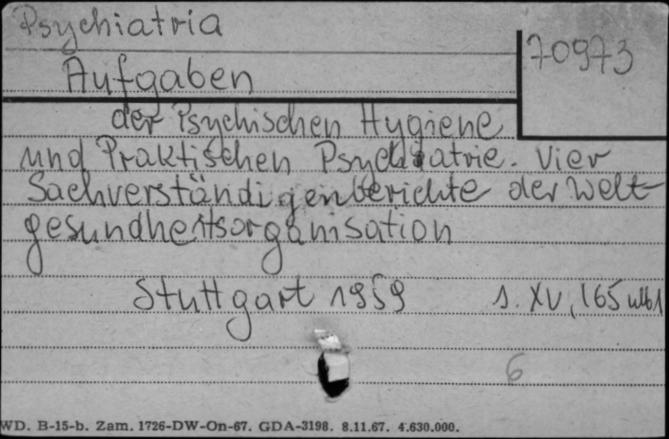 Psychiatria
70973
Aufgaben
der Psychischen Hygiene
und Praktischen Psychiatrie. Vier
Sachverständigenberichte der Welt
gesundheitsorganisation
Stuttgart 1959 s. XV, 165
6
WD. B-15-b. Zam. 1726-DW-On-67. GDA-3198. 8.11.67. 4.630.000.